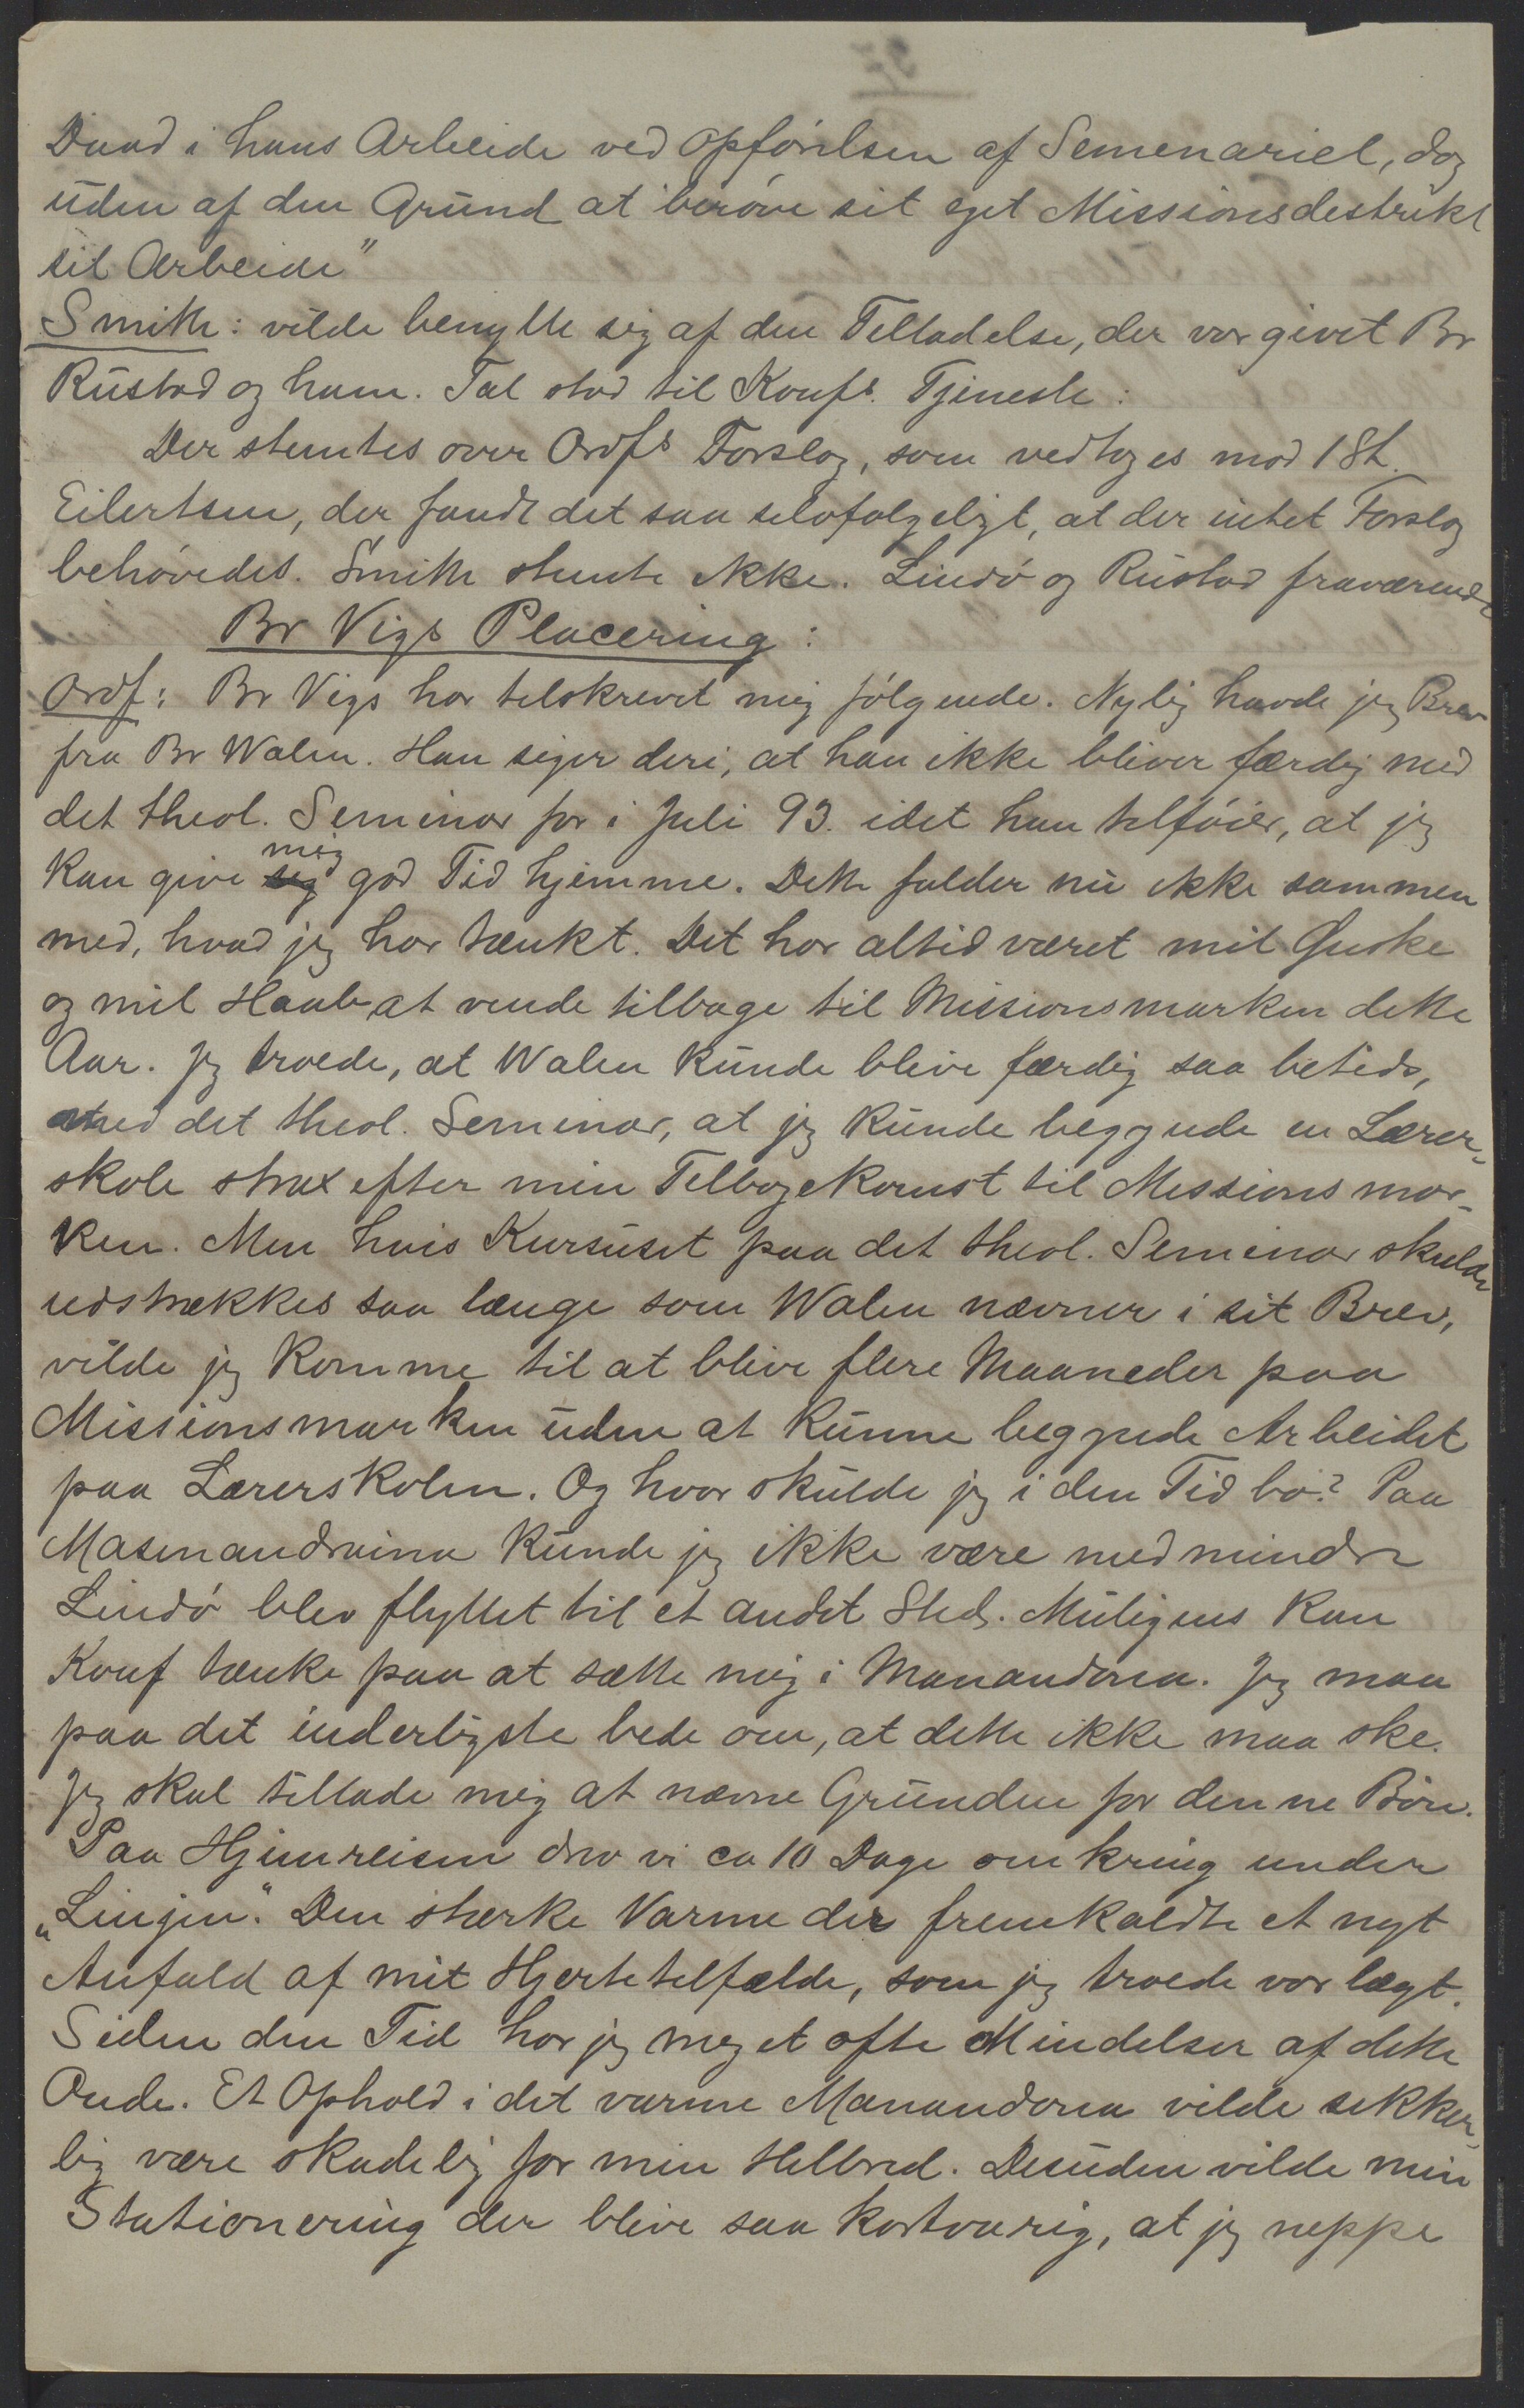 Daad i hans Arbeide ved Opførelsen af Semenariet, dog
uden af den Grund at berøve sit eget Missionsdestrikt
sit Arbeide"
Smith: vilde benytte sig af den Telladelse, der var givet Br
Rustad og ham. Tal stod til Konfs. Tjeneste:
Der stemtes over Ordfs Forslag, som vedtoges mod 1 St.
Eilertsen, der fandt det saa selvfølgeligt, at der intet Forslag
behøvedes. Smith stemte ikke. Lindø og Rustad fraværende
Br Vigs Placering:
Ordf: Br Vigs har telskrevet mig følgende. Nylig havde jeg Brev
fra Br Walen. Han siger deri, at han ikke bliver færdig med
det theol. Seminar før i Juli 93. idet han telføier, at jeg
kan give mig god Tid hjemme. Dette falder nu ikke sammen
med, hvad jeg har tænkt. Det har altid været mit Ønske
og mit Haab at vende tilbage til Missionsmarken dette
Aar. Jeg troede, at Walen kunde blive færdig saa betids,
med det theol. Seminar, at jeg kunde begynde en Lærer-
skole strax efter min Telbagekomst til Missionsmar-
ken. Men hvis Kursuset paa det theol. Seminar skulde
udstrækkes saa længe som Walen nævner i sit Brev,
vilde jeg komme til at blive flere Maaneder paa
Missionsmarken uden at kunne begynde Arbeidet
paa Lærerskolen. Og hvor skulde jeg i den Tid bo? Paa
Masinandraina kunde jeg ikke være med mindre
Lindø blev flyttet til et andet Sted. Muligens kan
Konf tænke paa at sætte mig i Manandona. Jeg maa
paa det inderligste bede om, at dette ikke maa ske.
Jeg skal tillade mig at nævne Grunden for denne Bøn.
Paa Hjemreisen drev vi ca 10 Dage omkring under
"Linjen". Den stærke Varme der fremkaldte et nyt
Anfald af mit Hjertetelfælde, som jeg troede var lægt.
Siden den Tid har jeg meget ofte Mindelser af dette
Onde. Et Ophold i det varme Manandona vilde sikker-
lig være skadelig for min Helbred. Desuden vilde min
Stationering der blive saa kortvarig, at jeg neppe